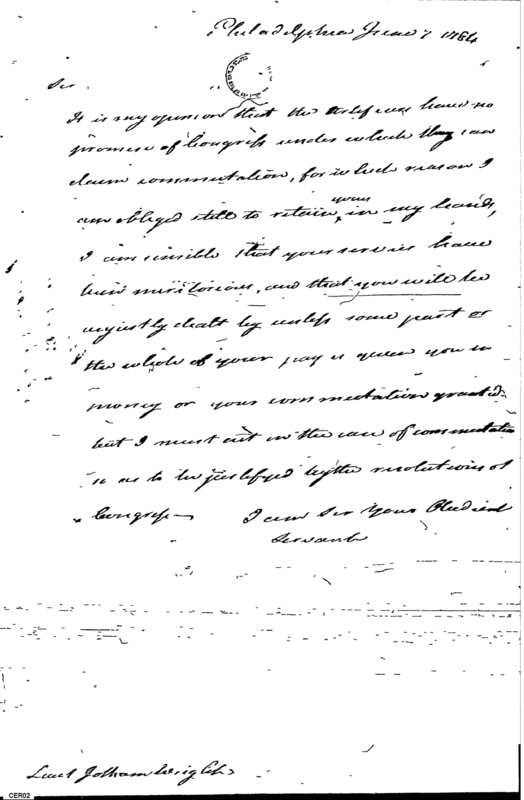 Philadelphia June 7 1784
Sir
It is my opinion that the artificers have no
promise of Congress under which they can
claim commutation, for which reason I
am obliged still to retain yours in my hands,
I am sensible that your services have
been meritorious, and that you will be
unjustly dealt by unless some part or
the whole of your pay is given you in
money or your commutation granted
but I must act in the case of commutation
so as to be justifyed by the resolutions of
Congress
I am Sir Your Obedient
Servant
Lieut Jotham Wright
CER02